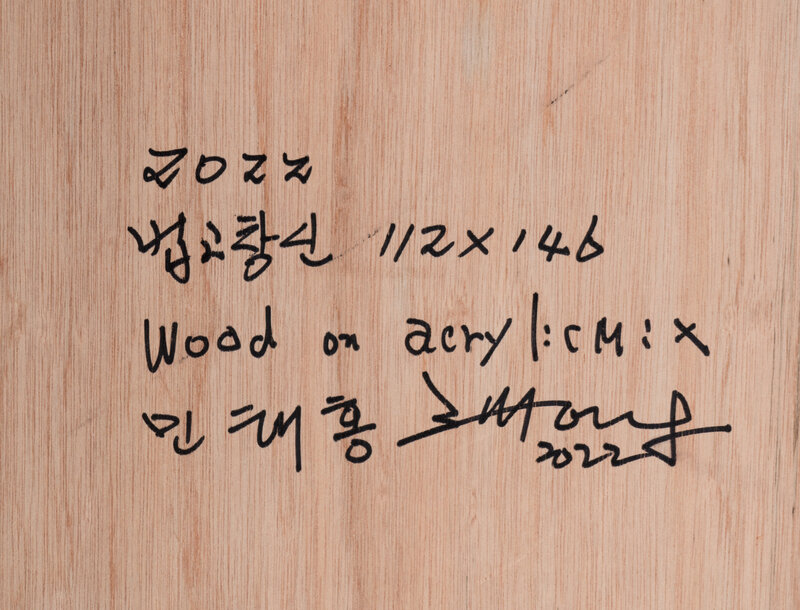 2022
법고창신 112X146
Wood on acrylic Mix
민태홍
2022